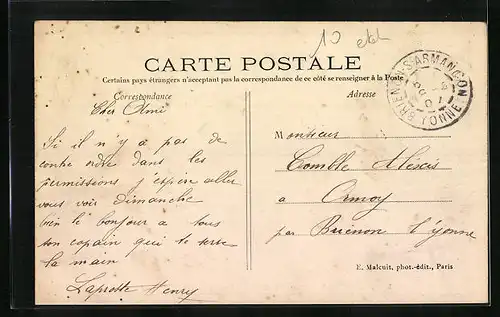 10 etch
CARTE POSTALE
Certains pays étrangers n'acceptant pas la correspondance de ce côté se renseigner à la Poste
Correspondance
Adresse
BRIENON-S-ARMANÇON
YONNE
Cher Ami
Si il n'y a pas de
contre ordre dans les
permissions j'espère aller
vous voir dimanche
bien le bonjour a tous
ton copain qui te serre
la main
Laprotte Henry
Monsieur
Comble Alexis
a Ormoy
par Brienon l'yonne
E. Malcuit, phot.-édit., Paris